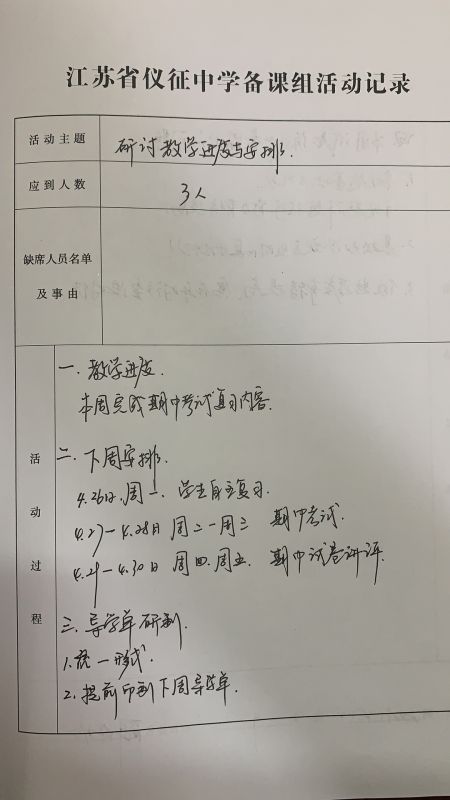 江苏省仪征中学备课组活动记录
活动主题 研讨教学进度与安排.
应到人数 3人
缺席人员名单
及事由
活动过程
一. 教学进度.
本周完成期中考试复习内容.
二. 下周安排.
4.26日.周一. 学生自主复习.
4.27—4.28日 周二—周三 期中考试.
4.29—4.30日 周四.周五. 期中试卷讲评.
三. 导学单研制.
1. 统一形式.
2. 提前印制下周导学单.